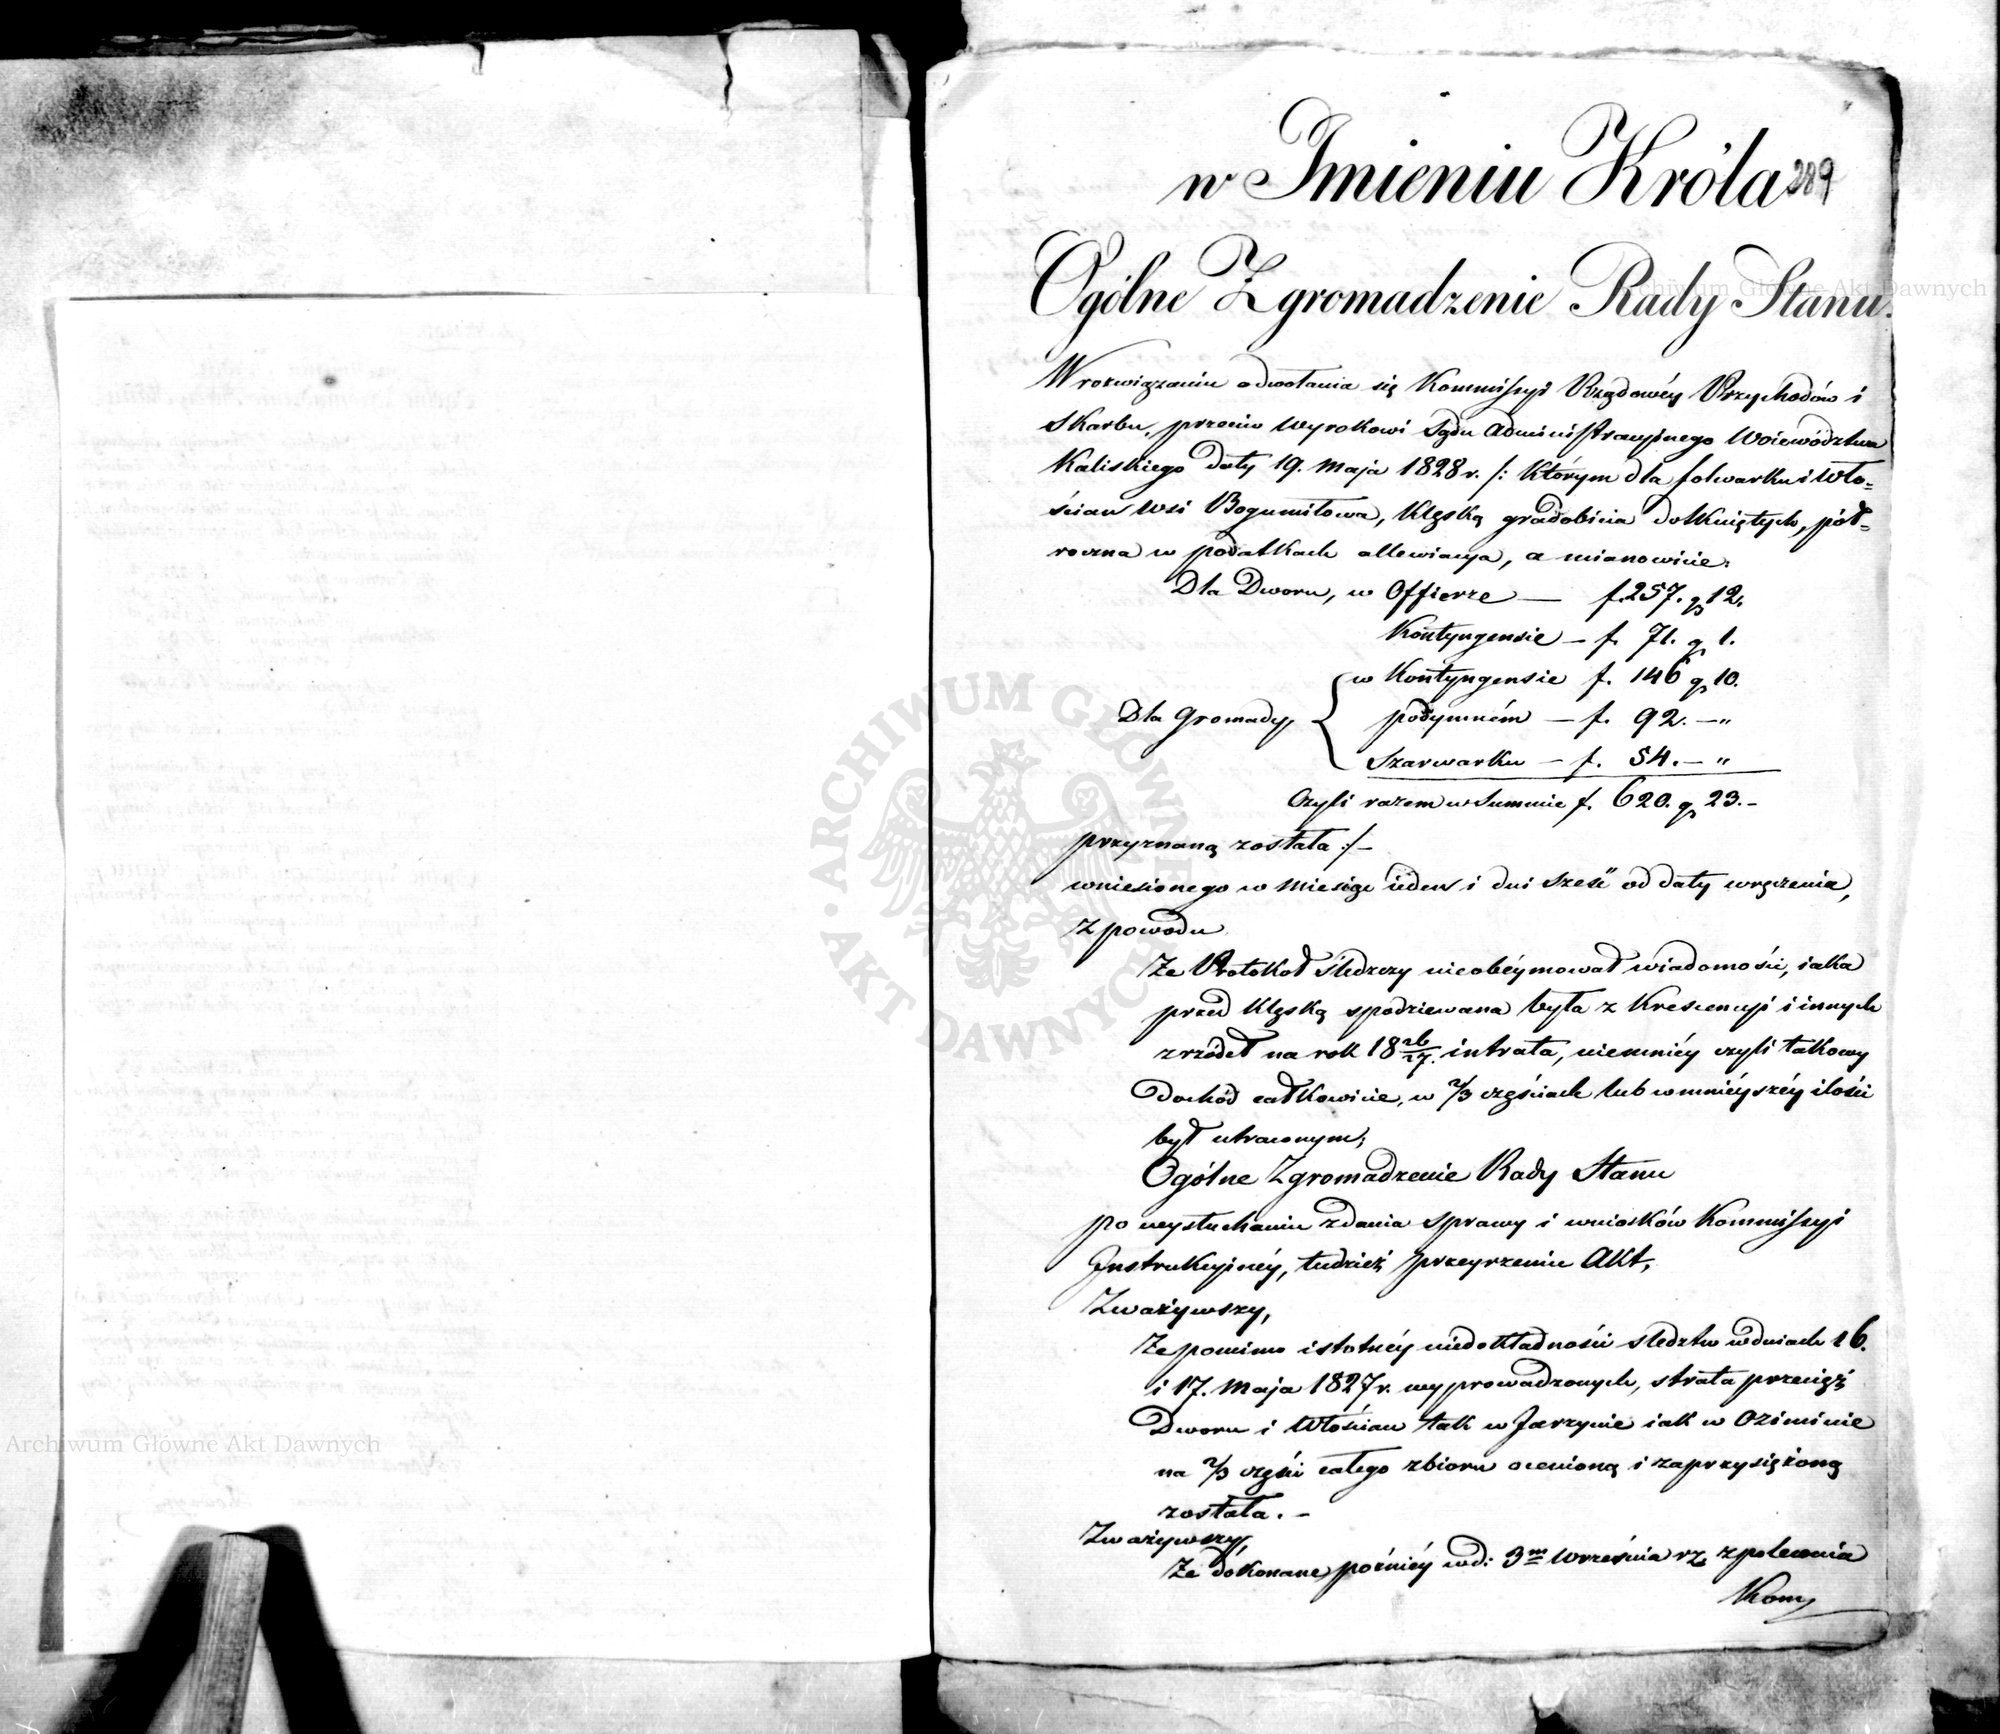 289
w Imieniu Króla
Ogólne Zgromadzenie Rady Stanu.
W rozwiązaniu odwołania się Kommissyi Rządowéy Przychodów i
Skarbu, przeciw Wyrokowi Sądu Administracyinego Woiewództwa
Kaliskiego daty 19. Maja 1828 r. /: Którym dla folwarku i Wło=
ścian Wsi Bogumiłowa, Klęską gradobicia dotkniętych, pół=
roczna w podatkach allewiacya, a mianowicie:
Dla Dworu, w Offierze — f. 257. g 12.
Kontyngensie — f. 71. g 1.
w Kontyngensie f. 146 g 10.
Dla Gromady, podymném — f. 92. — "
Szarwarku — f. 54. — "
Czyli razem w Summie f. 620. g 23. –
przyznaną została :/ –
wniesionego w Miesiąc ieden i dni sześć od daty wręczenia,
z powodu
Że Protokół śledczy nieobéymował wiadomości, iaka
przed Klęską spodziewana była z Krescencyi i innych
zrzódeł na rok 18 26/27. intrata, niemniéy czyli takowy
dochód całkowicie, w 2/3 częściach lub w mniéyszéy ilości
był utraconym;
Ogólne Zgromadzenie Rady Stanu
po wysłuchaniu zdania sprawy i wniosków Kommissyi
Instrukcyinéy, tudzież przeyrzeniu Akt,
Zważywszy,
Że pomimo istotnéy niedokładności śledztw w dniach 16.
i 17. Maja 1827 r. wyprowadzonych, strata przecięż
Dworu i Włościan tak w Jarzynie iak w Oziminie
na 2/3 części całego zbioru ocenioną i zaprzysiężoną
została. –
Zważywszy,
Że dokonane poźniéy w d: 3m Września r. z. z polecenia
Kom
Archiwum Główne Akt Dawnych
Archiwum Główne Akt Dawnych
ARCHIWUM GŁÓWNE AKT DAWNYCH